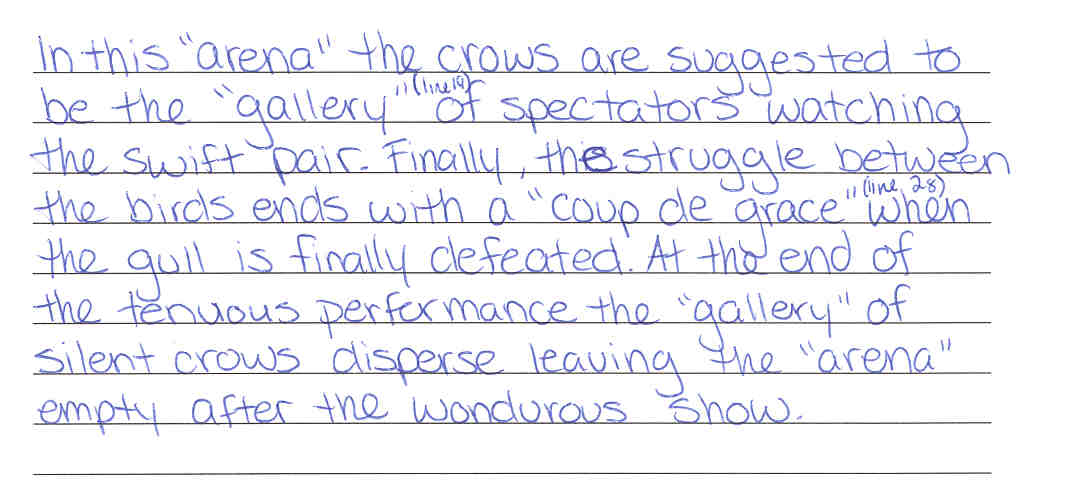 In this "arena" the crows are suggested to
be the "gallery" (line 19) of spectators watching
the swift pair. Finally, the struggle between
the birds ends with a "coup de grace" (line 28) when
the gull is finally defeated. At the end of
the tenuous performance the "gallery" of
silent crows disperse leaving the "arena"
empty after the wondurous show.